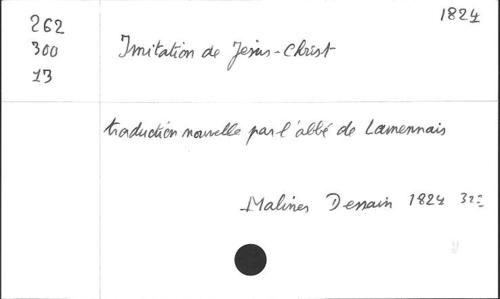 1824
262
300 Imitation de Jésus-Christ
13
traduction nouvelle par l'abbé de Lamennais
Malines Dessain 1824 32=